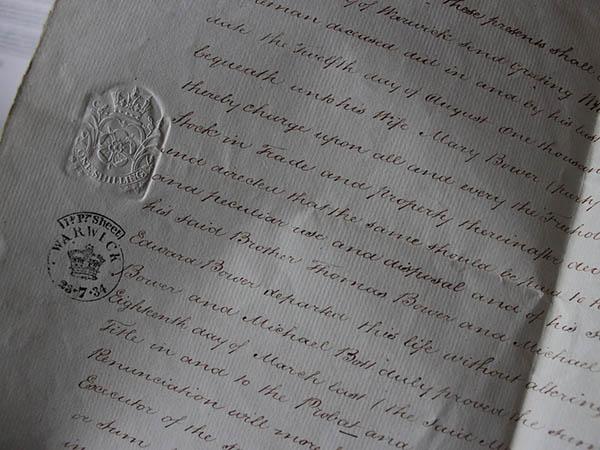 these presents shall
of Warwick send Greeting
deceased did in and by his last
date the Twelfth day of August One thousand
bequeath unto his Wife Mary Bower
thereby charge upon all and every the
Stock in Trade and property thereinafter
and directed that the same should be paid to
and peculiar use and disposal and of his
his said Brother Thomas Bower and Michael
Edward Bower departed this life without altering
Bower and Michael Bott duly proved the
Eighteenth day of March last (the said
Title in and to the Probat and
Renunciation will more
Executor of the
or Sum
in
ONE SHILLING
1d. Pr. Sheet
WARWICK
23·7·34